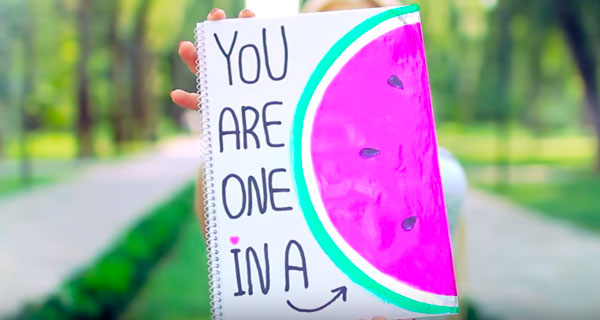 YOU
ARE
ONE
iN A